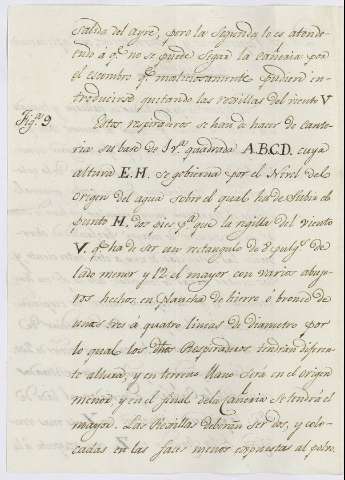 salida del ayre, pero la segunda lo es atendi-
endo á qᵉ no se puede segar la Cañeria por
el escombro qᵉ maliciosamente pudiera in-
troducirse quitando las rexillas del viento V
Figᵃ 9. Estos respiraderos se han de hacer de cante-
ria su base de 1 vᵃ quadrada A.B.C.D. cuya
altura E.H. se gobierna por el Nivel del
Origen del agua sobre el qual ha de Subir el
punto H, dos pies pᵃ que la rigilla del viento
V. qᵉ ha de ser un rectangulo de 8 pulgˢ de
lado menor y 12 el mayor con varios abuje-
ros hechos en plancha de hierro ó bronce de
unas tres á quatro lineas de diametro por
lo qual los dhos Respiraderos tendrán diferente
altura, y en terreno llano será en el origen
menor y en el final de la Cañeria se tendrá el
mayor. Las Rexillas deberán ser dos, y colo-
cadas en las fases menos expuestas al polvo.